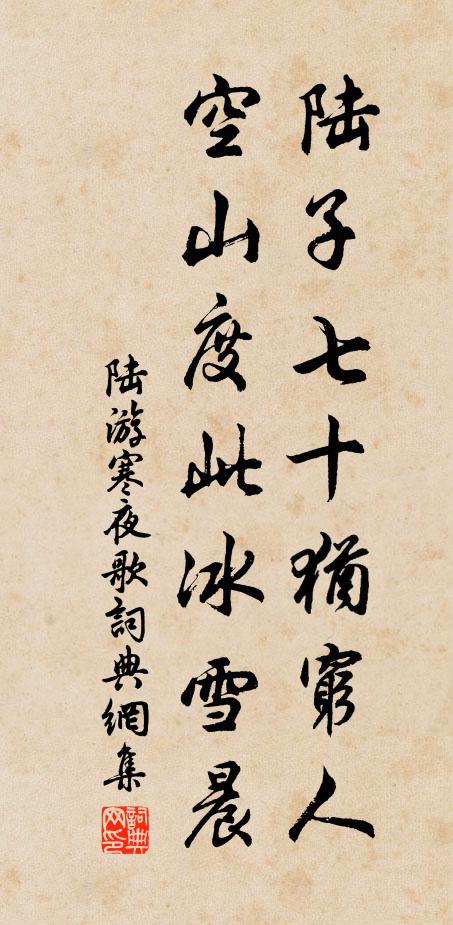 陆子七十犹窮人
空山度此冰雪晨
陆游寒夜歌詞典網集
詞典网印